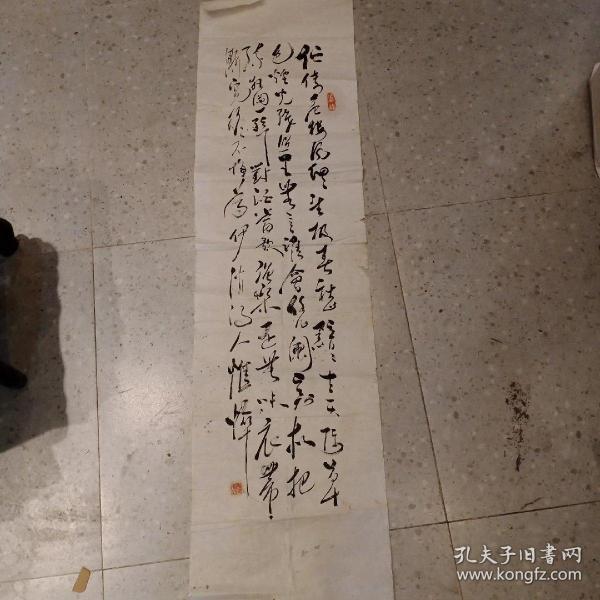 伫倚危楼风细细望极春愁黯黯生天际草
色烟光残照里无言谁会凭阑意拟把
疏狂图一醉对酒当歌强乐还无味衣带
渐宽终不悔为伊消得人憔悴
孔夫子旧书网
www.kongfz.com